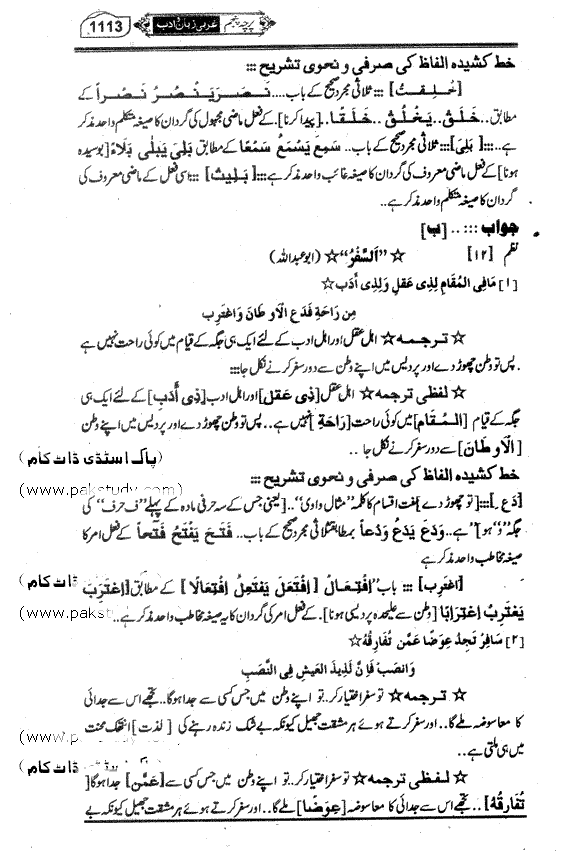 1113 پرچہ پنجم عربی زبان و ادب
خط کشیدہ الفاظ کی صرفی و نحوی تشریح :::
[خُلِقتُ] ::: ثلاثی مجرد صحیح کے باب.... نَـصَـرَ يَـنْـصُـرُ نَـصْـراً کے
مطابق.. خَلَقَ.. يَخْلُقُ.. خَلَقًا.. [پیدا کرنا]. کے فعل ماضی مجہول کی گردان کا صیغہ متکلم واحد مذکر
ہے..::: [بَلِیَ]::: ثلاثی مجرد صحیح کے باب.. سَمِعَ يَسْمَعُ سَمْعًا کے مطابق بَلِیَ يَبْلٰی بَلَاءً [بوسیدہ
ہونا] کے فعل ماضی معروف کی گردان کا صیغہ غائب واحد مذکر ہے:::[بَلِيتُ] :::اسی فعل کے ماضی معروف کی
گردان کا صیغہ متکلم واحد مذکر ہے..
جواب :::.. [ب]
نظم [۱۲] ☆ ”اَلسَّفَرُ“ ☆ (ابوعبداللہ)
[۱] مَافِی المُقَامِ لِذِی عَقلٍ وَلِذِی أَدَبٍ☆
مِن رَاحَةٍ فَدَعِ الْاَوطَانَ وَاغتَرِب
☆ ترجمہ☆ اہل عقل اور اہل ادب کے لئے ایک ہی جگہ کے قیام میں کوئی راحت نہیں ہے
.پس تو وطن چھوڑ دے اور پردیس میں اپنے وطن سے دور سفر کرنے نکل جا:::
☆ لفظی ترجمہ☆ اہل عقل [ذِی عَقلٍ] اور اہل ادب [ذِی أَدَبٍ] کے لئے ایک ہی
جگہ کے قیام [المُقَام] میں کوئی راحت [رَاحَةٍ] نہیں ہے.. پس تو وطن چھوڑ دے اور پردیس میں اپنے وطن
[الْاَوطَانَ] سے دور سفر کرنے نکل جا..
(پاک اسٹڈی ڈاٹ کام)
خط کشیدہ الفاظ کی صرفی و نحوی تشریح :::
(www.pakstudy.com)
[دَع].::[تو چھوڑ دے] ہفت اقسام کا کلمہ ”مثال واوی“..[یعنی جس کے سہ حرفی مادہ کے پہلے ”ف حرف“ کی
جگہ ”و“ ہو] ہے.. وَدَعَ يَدَعُ وَدْعاً بمطابق ثلاثی مجرد صحیح کے باب.. فَتَحَ يَفْتَحُ فَتْحاً کے فعل امر کا
صیغہ مخاطب واحد مذکر ہے
[اغتَرِب] ::: باب اِفْتِعَالٌ [اِفْتَعَلَ يَفْتَعِلُ اِفْتِعَالًا] کے مطابق [اِغْتَرَبَ
ڈاٹ کام)
يَغْتَرِبُ اِغْتِرَابًا] [وطن سے علیحدہ پردیسی ہونا]. کے فعل امر کی گردان کا یہ صیغہ مخاطب واحد مذکر ہے..
(www.pakst
[۲] سَافِرْ تَجِدْ عِوَضًا عَمَّن تُفَارِقُهُ☆
وَانصَب فَاِنَّ لَذِیذَ العَیشِ فِی النَّصَبِ
☆ ترجمہ☆ تو سفر اختیار کر.. تو اپنے وطن میں جس کسی سے جدا ہوگا.. تجھے اس سے جدائی
کا معاوضہ ملے گا.. اور سفر کرتے ہوئے ہر مشقت جھیل کیونکہ بے شک زندہ رہنے کی [لذت] انتھک محنت
(www.pa
میں ہی ملتی ہے..
ڈاٹ کام)
☆ لفظی ترجمہ☆ تو سفر اختیار کر.. تو اپنے وطن میں جس کسی سے [عَمَّن] جدا ہوگا]
تُفَارِقُهُ].. تجھے اس سے جدائی کا معاوضہ [عِوَضًا] ملے گا.. اور سفر کرتے ہوئے ہر مشقت جھیل کیونکہ بے